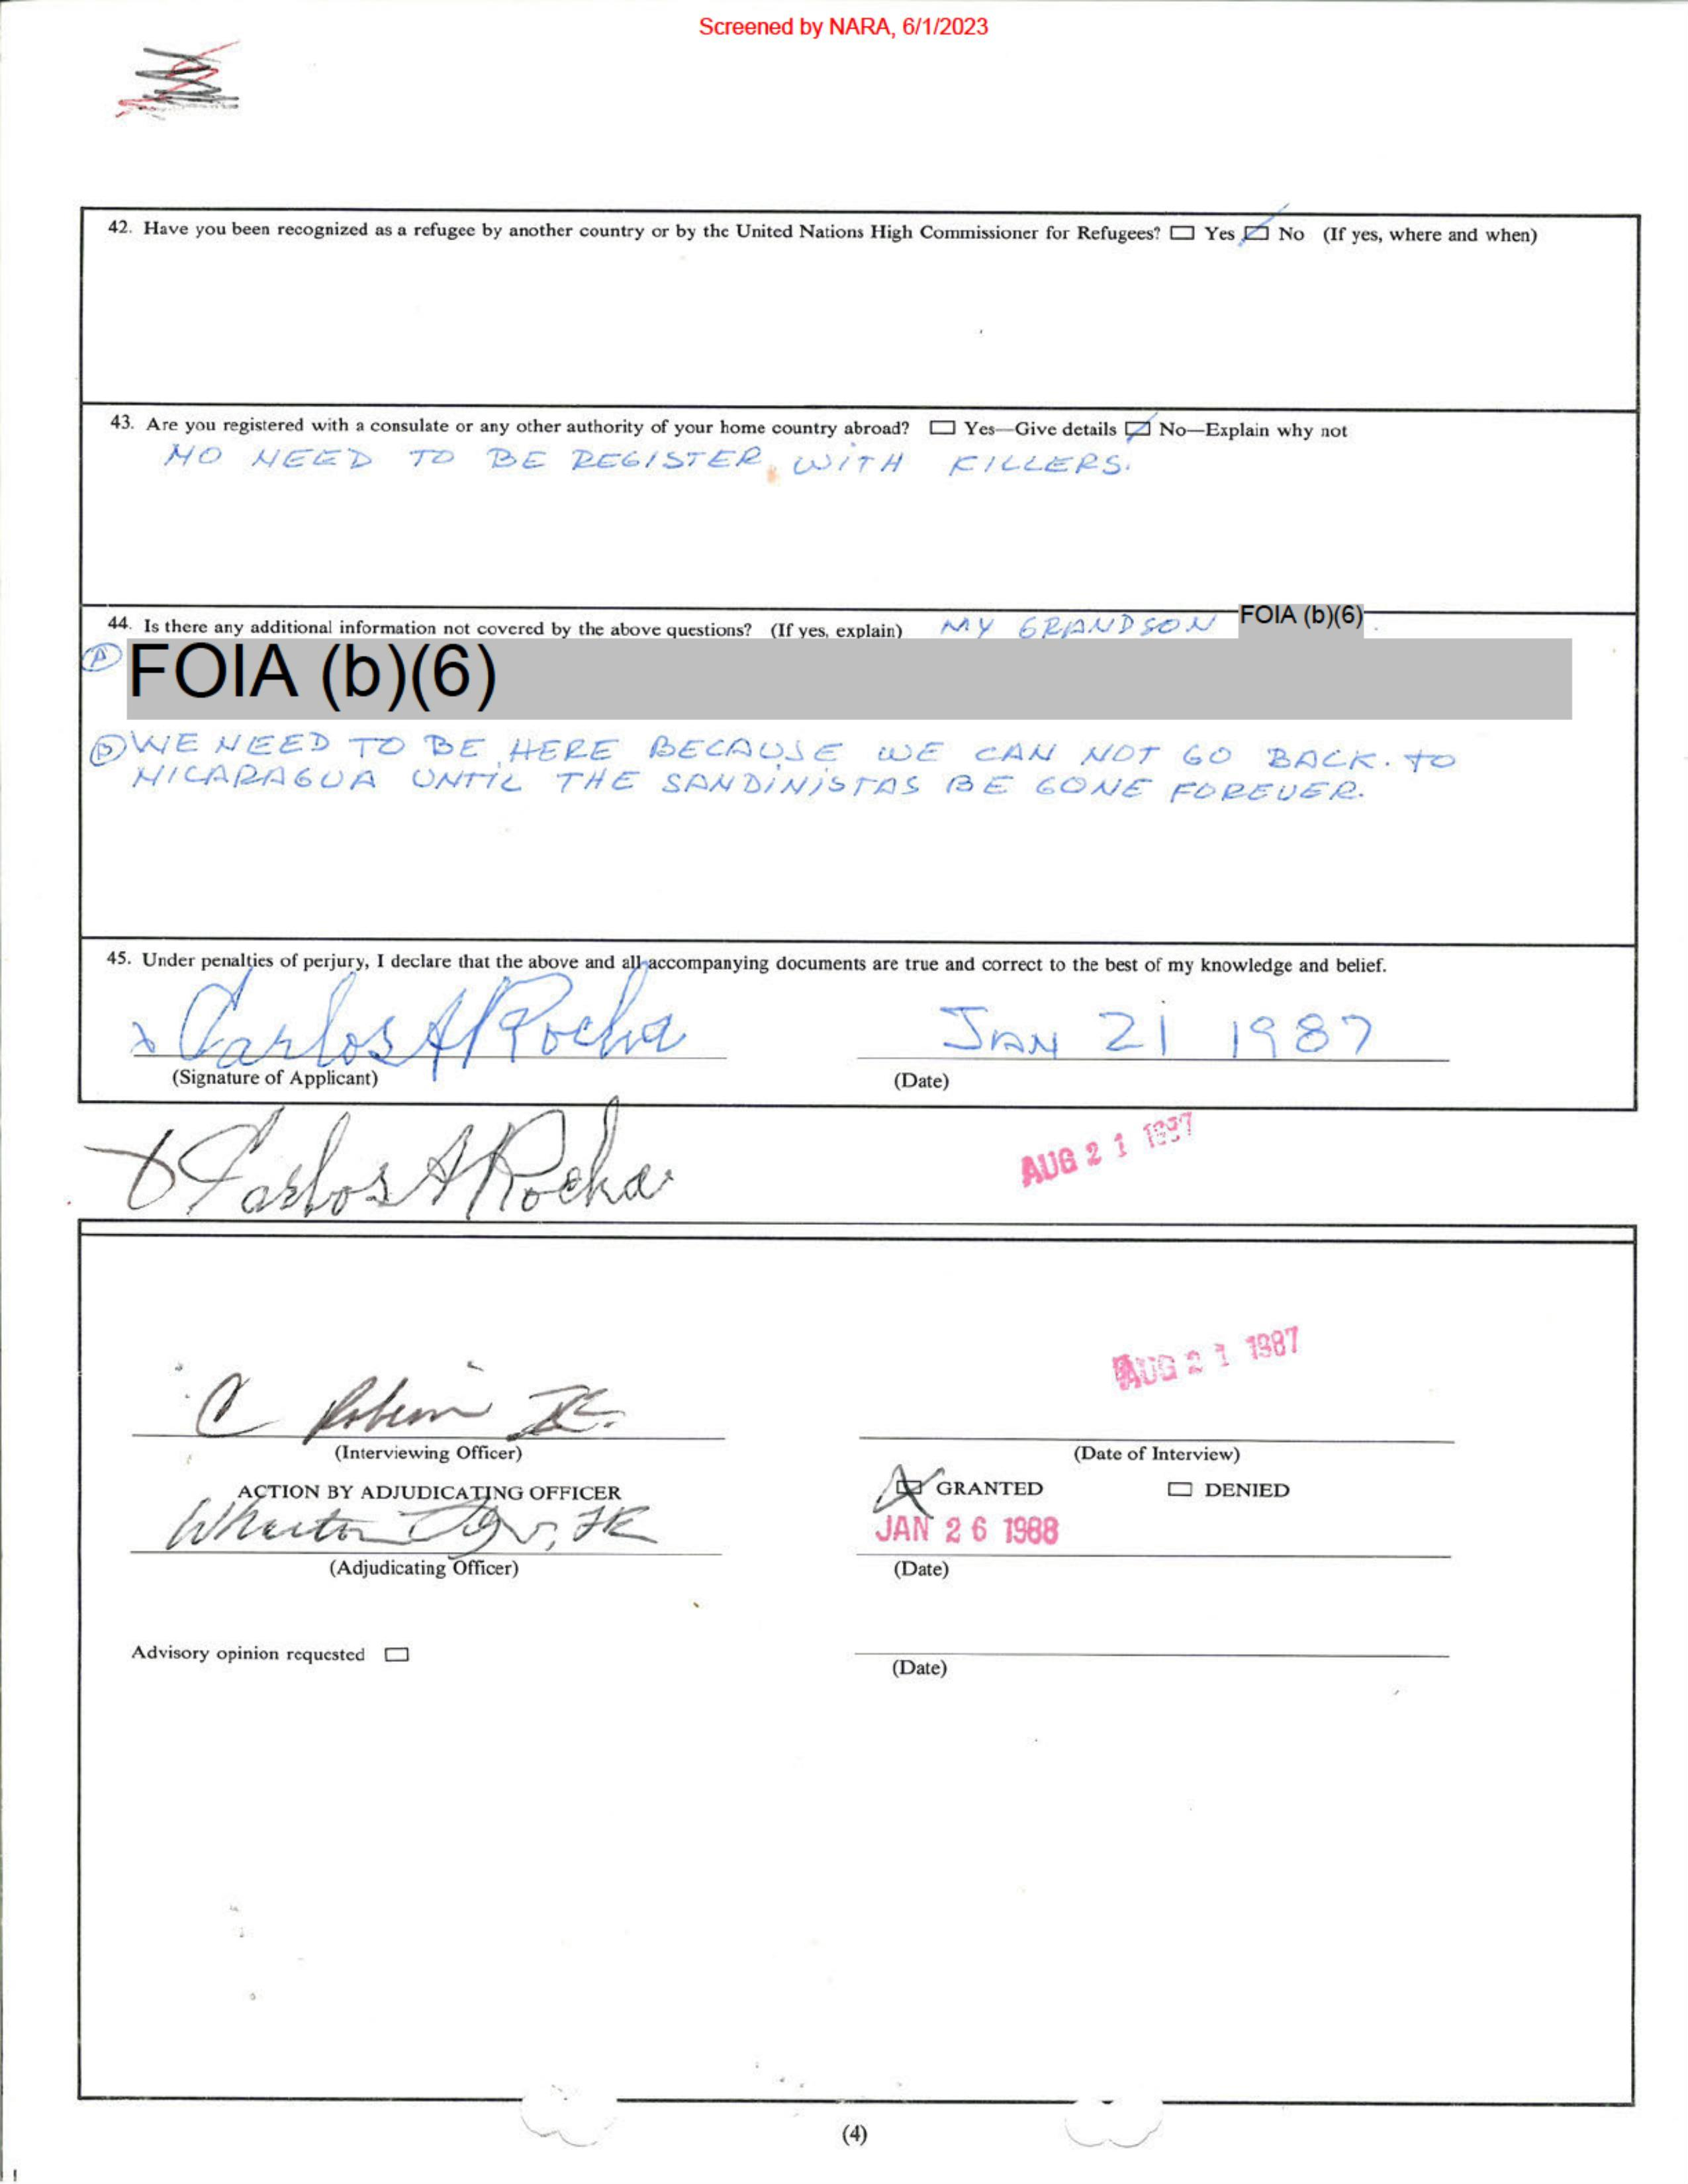 Screened by NARA, 6/1/2023
42. Have you been recognized as a refugee by another country or by the United Nations High Commissioner for Refugees? Yes No (If yes, where and when)
43. Are you registered with a consulate or any other authority of your home country abroad? Yes—Give details No—Explain why not
NO NEED TO BE REGISTER WITH KILLERS.
44. Is there any additional information not covered by the above questions? (If yes, explain) MY GRANDSON FOIA (b)(6)
A FOIA (b)(6)
B WE NEED TO BE HERE BECAUSE WE CAN NOT GO BACK. TO
NICARAGUA UNTIL THE SANDINISTAS BE GONE FOREVER.
45. Under penalties of perjury, I declare that the above and all accompanying documents are true and correct to the best of my knowledge and belief.
x Carlos A Rocha JAN 21 1987
(Signature of Applicant) (Date)
x Carlos A Rocha AUG 21 1987
AUG 21 1987
(Interviewing Officer) (Date of Interview)
ACTION BY ADJUDICATING OFFICER GRANTED DENIED
JAN 26 1988
(Adjudicating Officer) (Date)
Advisory opinion requested
(Date)
(4)